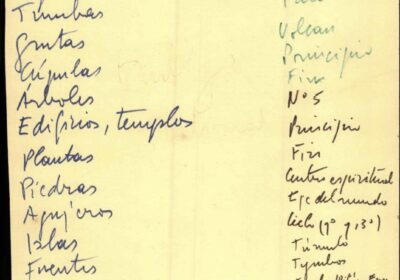 Tumbas
Grutas
Cúpulas
Árboles
Edificios, templos
Plantas
Piedras
Agujeros
Islas
Fuentes
Volcan
Principio
Fin
Nº 5
Principio
Fin
Centro espiritual
Eje del mundo
Ciclo (1º y 3º)
Túmulo
Tymbos